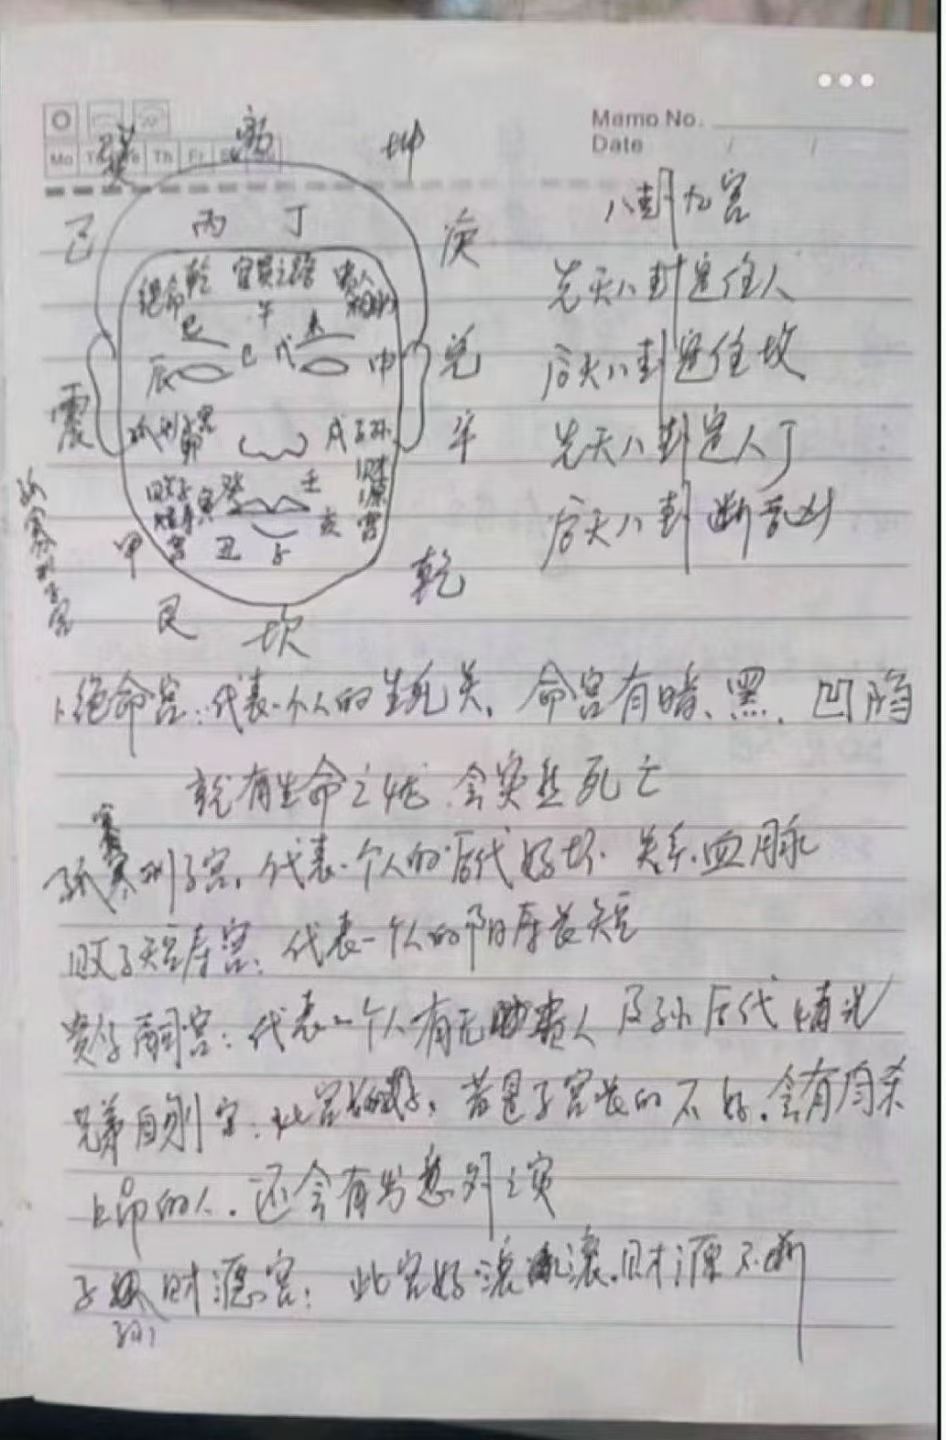 Memo No.
Date / /
Mo Th Fr
离 坤
八卦九宫
巳 丙 丁 庚
先天八卦定住人
绝命 乾 官贵之路 贵人
午
后天八卦定住坟
辰 申 兑
震 戌 子孙 辛
先天八卦定人丁
癸 壬 财源宫
寅 亥
后天八卦断吉凶
甲 丑 子 乾
艮 坎
孤寡刑子宫
1、绝命宫:代表一个人的生死关,命宫有暗、黑、凹陷
就有生命之忧 会突然死亡
孤寡刑子宫,代表一个人的后代好坏 关系血脉
败子短寿宫:代表一个人的阳寿长短
贵子嗣宫:代表一个人有无贵人 及子孙后代情况
兄弟自刎宫,此宫若是子宫长的不好,会有自杀
上吊的人.还会有意外之灾
子孙财源宫:此宫好滚滚.财源不断